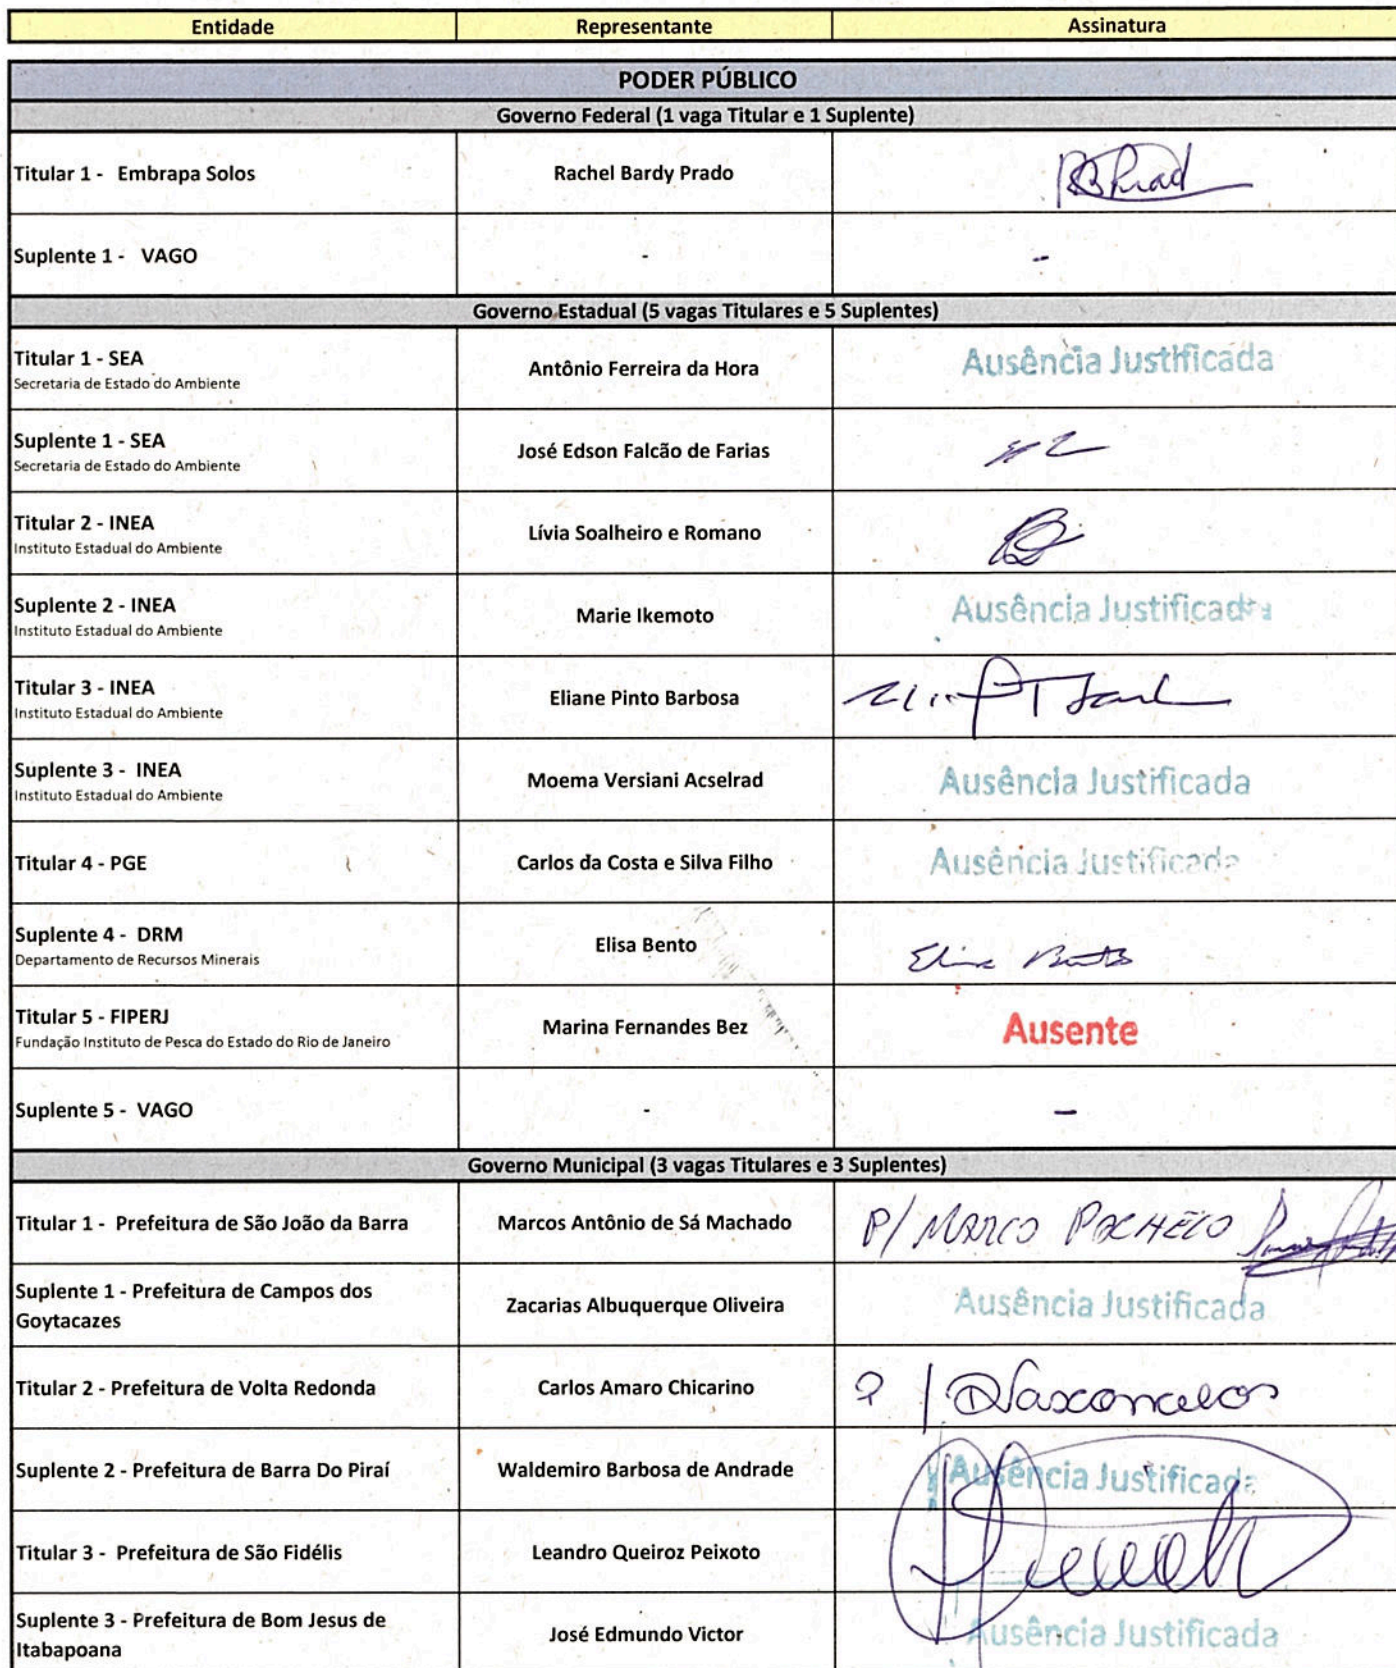 Entidade Representante Assinatura
PODER PÚBLICO
Governo Federal (1 vaga Titular e 1 Suplente)
Titular 1 - Embrapa Solos Rachel Bardy Prado
Suplente 1 - VAGO - -
Governo Estadual (5 vagas Titulares e 5 Suplentes)
Titular 1 - SEA
Secretaria de Estado do Ambiente
Antônio Ferreira da Hora Ausência Justificada
Suplente 1 - SEA
Secretaria de Estado do Ambiente
José Edson Falcão de Farias
Titular 2 - INEA
Instituto Estadual do Ambiente
Lívia Soalheiro e Romano
Suplente 2 - INEA
Instituto Estadual do Ambiente
Marie Ikemoto Ausência Justificada
Titular 3 - INEA
Instituto Estadual do Ambiente
Eliane Pinto Barbosa
Suplente 3 - INEA
Instituto Estadual do Ambiente
Moema Versiani Acselrad Ausência Justificada
Titular 4 - PGE Carlos da Costa e Silva Filho Ausência Justificada
Suplente 4 - DRM
Departamento de Recursos Minerais
Elisa Bento Elisa Bento
Titular 5 - FIPERJ
Fundação Instituto de Pesca do Estado do Rio de Janeiro
Marina Fernandes Bez Ausente
Suplente 5 - VAGO - -
Governo Municipal (3 vagas Titulares e 3 Suplentes)
Titular 1 - Prefeitura de São João da Barra Marcos Antônio de Sá Machado P/ MARCO PACHECO
Suplente 1 - Prefeitura de Campos dos
Goytacazes
Zacarias Albuquerque Oliveira Ausência Justificada
Titular 2 - Prefeitura de Volta Redonda Carlos Amaro Chicarino P/ Vasconcelos
Suplente 2 - Prefeitura de Barra Do Piraí Waldemiro Barbosa de Andrade Ausência Justificada
Titular 3 - Prefeitura de São Fidélis Leandro Queiroz Peixoto
Suplente 3 - Prefeitura de Bom Jesus de
Itabapoana
José Edmundo Victor Ausência Justificada